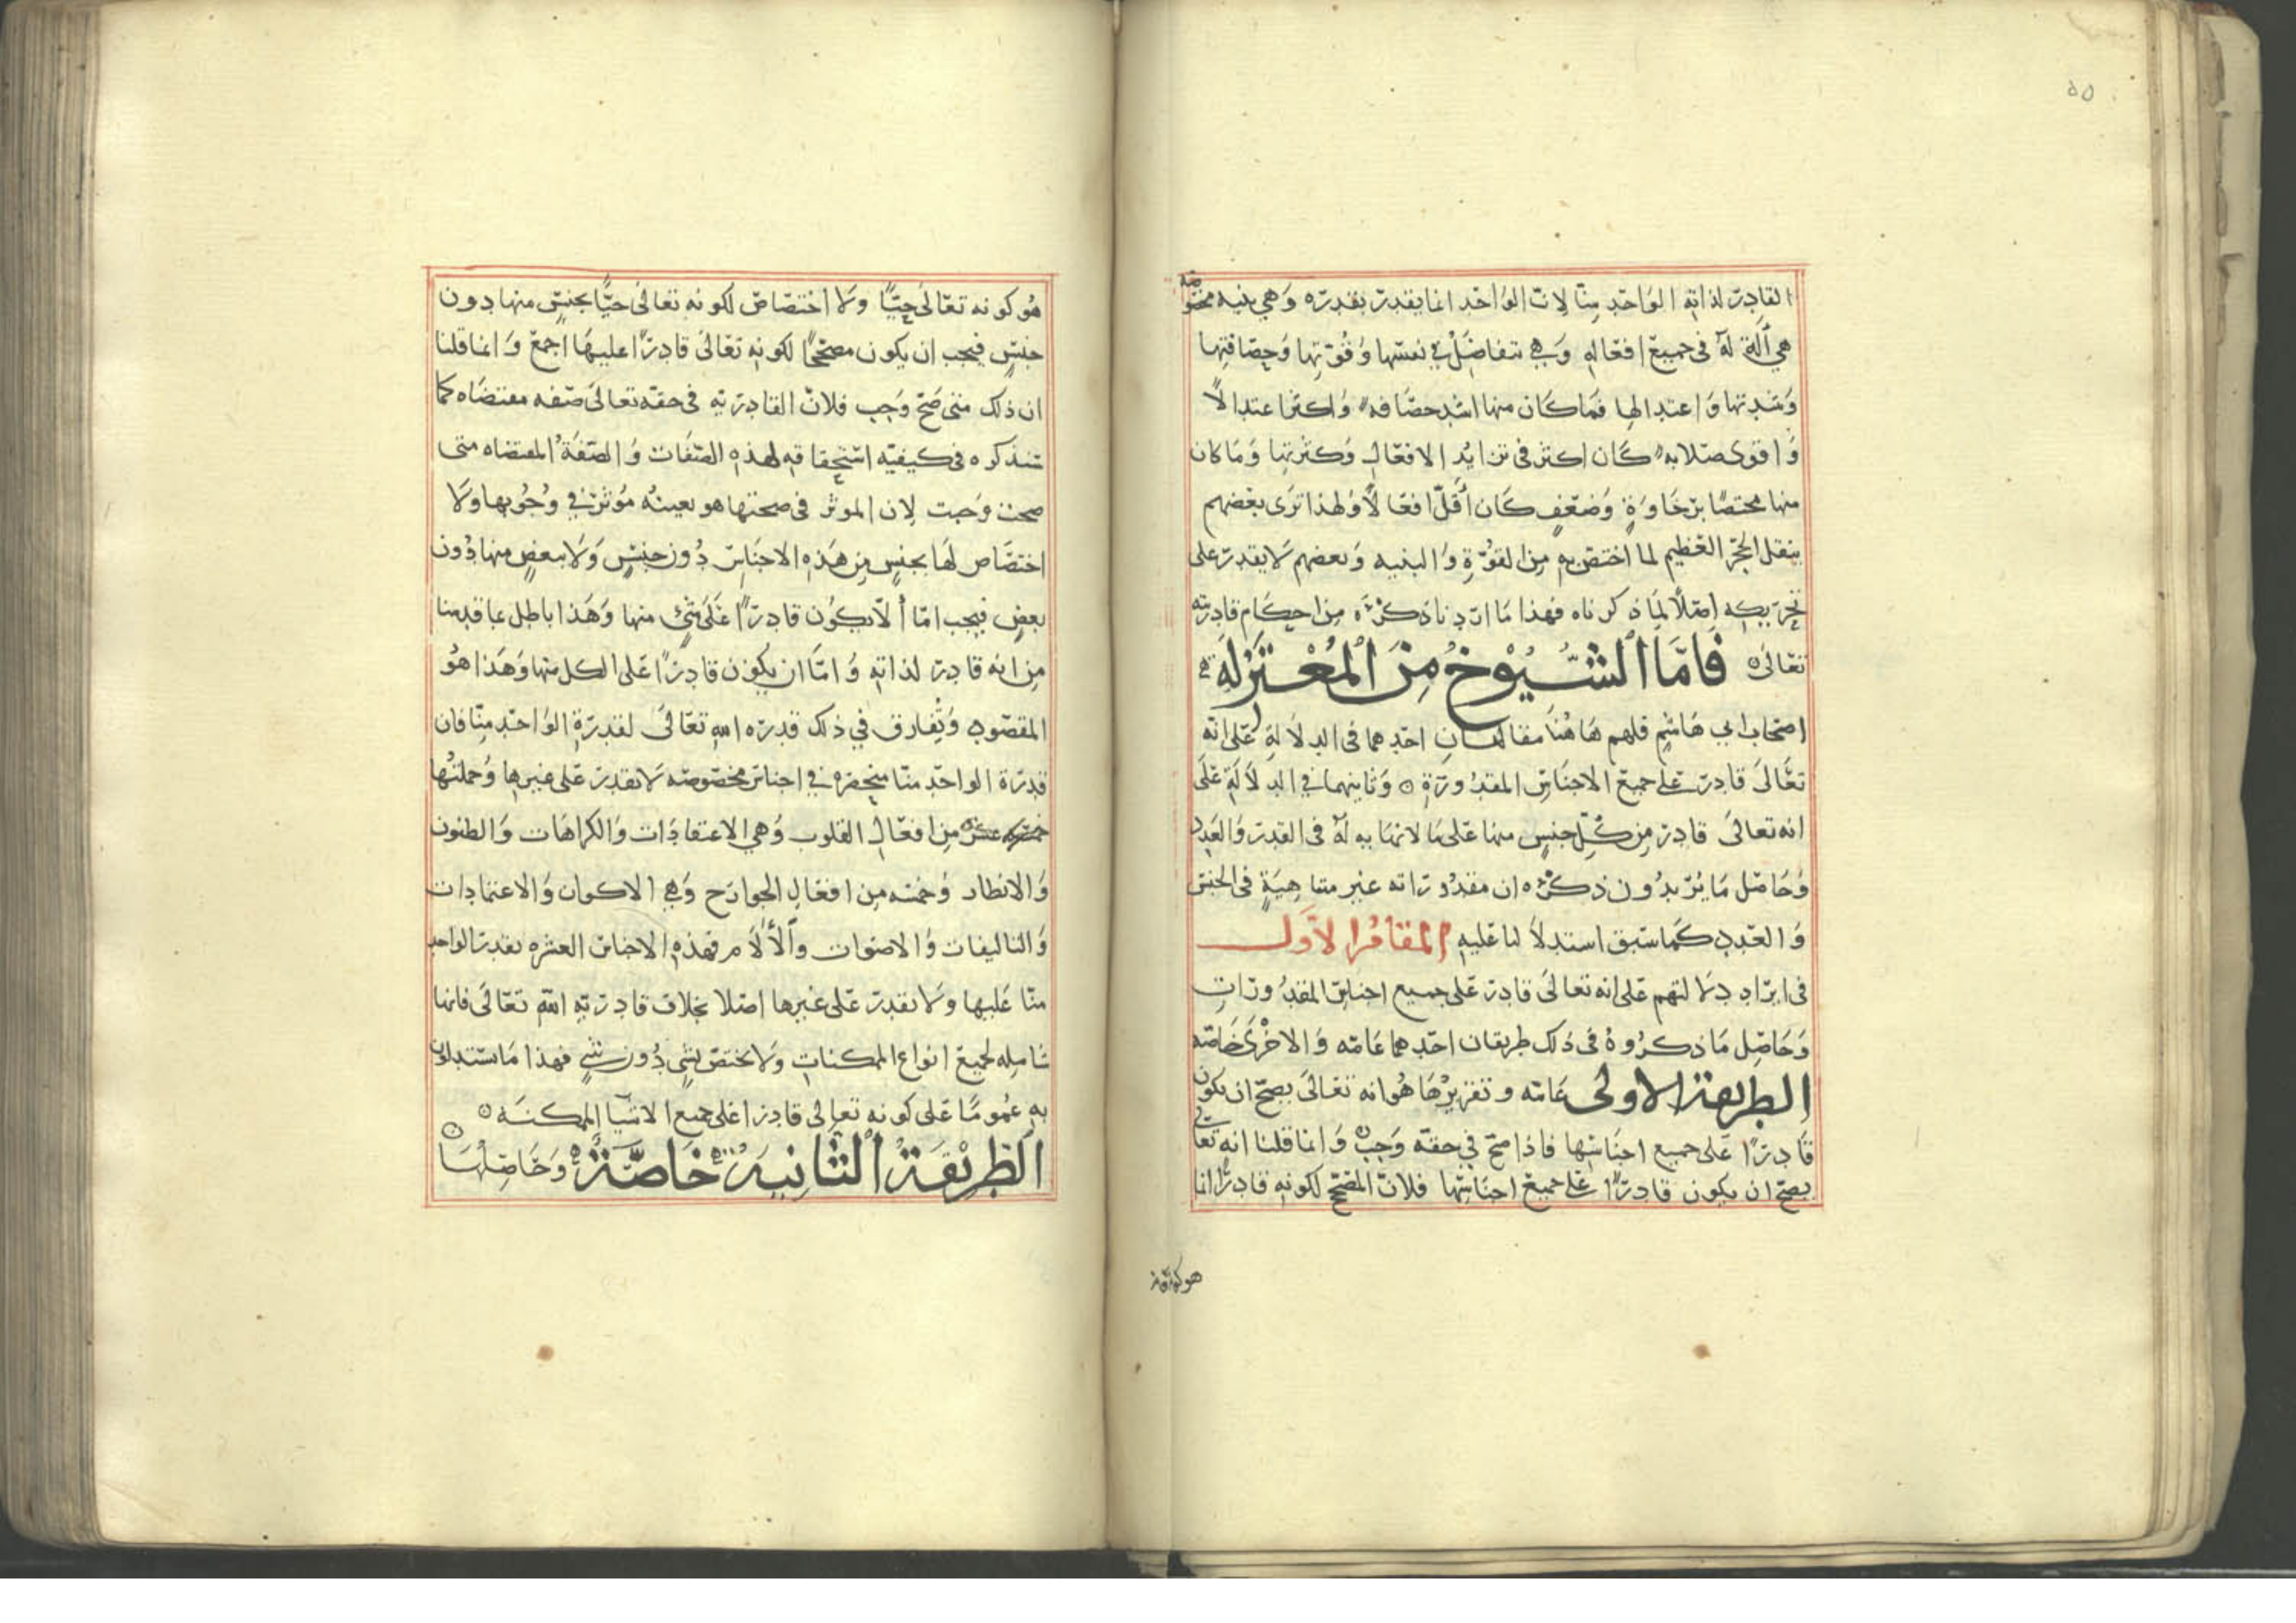 ٥٥
القادر لذاته الواحد منا لان الواحد انما يقدر بقدره وهي بنيه مخصوصه
هي آلة له في جميع افعاله وهي تتفاضل في نفسها وقوتها وحصافتها
وشدتها واعتدالها فما كان منها اشد حصافه واكثر اعتدالًا
واقوى صلابه كان اكثر في تزايد الافعال وكثرتها وما كان
منها مختصًا برخاوةٍ وضعفٍ كان أقلّ افعالًا ولهذا ترى بعضهم
ينقل الحجر العظيم لما اختص به من القوة والبنيه وبعضهم لا يقدر على
تحريكه اصلًا لما ذكرناه فهذا ما اردنا ذكره من احكام قادريته
تعالى فَامَّا الشُّيُوْخُ مِنَ الْمُعْتَزِلَةِ
اصحاب ابي هاشم فلهم هاهنا مقامان احدهما في الدلالة على انه
تعالى قادر على جميع الاجناس المقدورة وثانيهما في الدلالة على
انه تعالى قادر من كل جنسٍ منها على ما لا نهايه له في القدر والعدد
وحاصل ما يريدون ذكره ان مقدوراته غير متناهيةٍ في الجنس
والعدد كما سبق استدلالنا عليه المقام الاول
في ايراد دلالتهم على انه تعالى قادر على جميع اجناس المقدورات
وحاصل ما ذكروه في ذلك طريقان احدهما عامه والاخرى خاصه
الطريقة الاولى عامه وتقريرها هو انه تعالى يصح ان يكون
قادرًا على جميع اجناسها فاذا صح في حقه وجب وانما قلنا انه تعالى
يصح ان يكون قادرًا على جميع اجناسها فلان المصحح لكونه قادرًا انما
هو كونه
هو كونه تعالى حيًّا ولا اختصاص لكونه تعالى حيًّا بجنسٍ منها دون
جنسٍ فيجب ان يكون مصححًا لكونه تعالى قادرًا عليها اجمع وانما قلنا
ان ذلك متى صح وجب فلان القادريه في حقه تعالى صفه مقتضاه كما
سنذكره في كيفيه استحقاقه لهذه الصفات والصفة المقتضاه متى
صحت وجبت لان الموثر في صحتها هو بعينه موثر في وجوبها ولا
اختصاص لها بجنسٍ من هذه الاجناس دون جنسٍ ولا ببعضٍ منها دون
بعضٍ فيجب امّا ألّا يكون قادرًا على شيٍ منها وهذا باطل بما قدمنا
من انه قادر لذاته وامّا ان يكون قادرًا على الكل منها وهذا هو
المقصود وتفارق في ذلك قدره الله تعالى لقدرة الواحد منّا فان
قدرة الواحد منا منحصره في اجناس مخصوصه لا يقدر على غيرها وجملتها
عشره خمسه من افعال القلوب وهي الاعتقادات والكراهات والظنون
والانظار وخمسه من افعال الجوارح وهي الاكوان والاعتمادات
والتاليفات والاصوات والألآم فهذه الاجناس العشره يقدر الواحد
منا عليها ولا يقدر على غيرها اصلا بخلاف قادرية الله تعالى فانها
شامله لجميع انواع الممكنات ولا تختص بشيٍ دون شيٍ فهذا ما يستدلون
به عمومًا على كونه تعالى قادرا على جميع الاشيآ الممكنه
الطَّرِيْقَةُ الثَّانِيَةُ خَاصَّةٌ وحاصلها